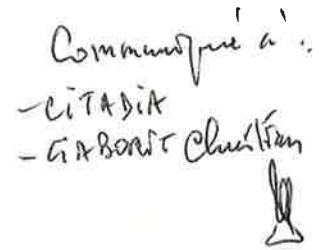 Communiqué à :
- CiTADiA
- GABORiT Christian